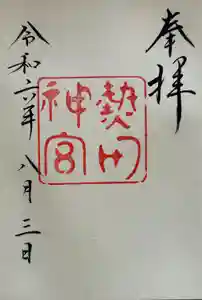 奉拝
熱田
神宮
令和六年 八月三日